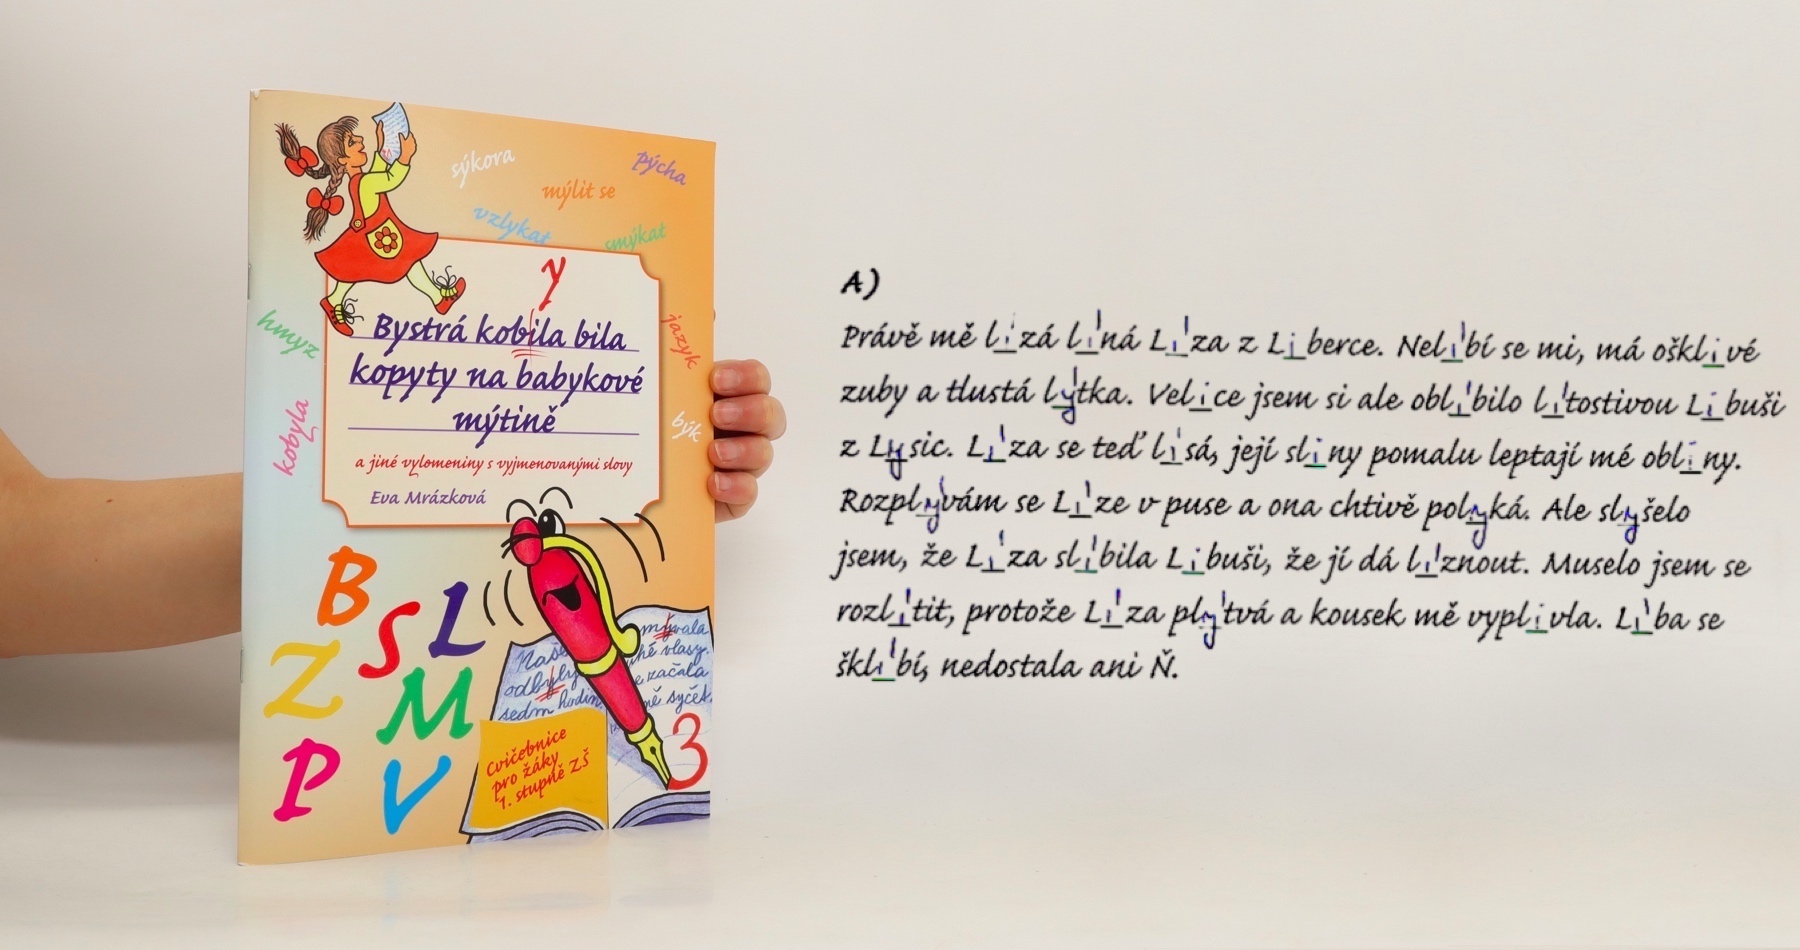 sýkora
pýcha
mýlit se
vzlykat
smýkat
hmyz
jazyk
kobyla
býk
y
Bystrá kobila bila
kopyty na babykové
mýtině
a jiné vylomeniny s vyjmenovanými slovy
Eva Mrázková
B
S
L
Z
M
P
V
Naše
odbyly
sedm hodin
mývala
vlasy.
začala
syčet.
3
Cvičebnice
pro žáky
1. stupně ZŠ
A)
Právě mě lízá líná Líza z Liberce. Nelíbí se mi, má ošklivé
zuby a tlustá lýtka. Velice jsem si ale oblíbilo lítostivou Libuši
z Lysic. Líza se teď lísá, její sliny pomalu leptají mé obliny.
Rozplývám se Líze v puse a ona chtivě polyká. Ale slyšelo
jsem, že Líza slíbila Libuši, že jí dá líznout. Muselo jsem se
rozlítit, protože Líza plýtvá a kousek mě vyplivla. Líba se
šklíbí, nedostala ani Ň.